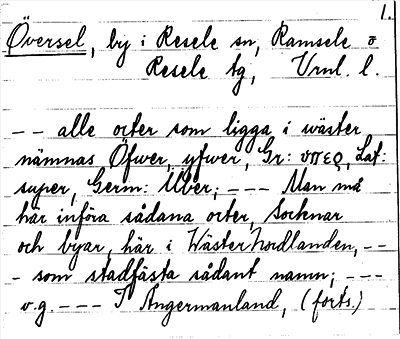 1.
Översel, by i Resele sn, Ramsele o
Resele tg, Vrnl. l.
-- alle orter som ligga i wäster
nämnas Öfwer, yfwer, Gr: υπερ, Lat:
super, Germ: Uber; --- Man må
här införa sådana orter, Socknar
och byar, här i WästerNordlanden, --
- som stadfästa sådant namn; ---
v.g. --- I Ångermanland, (forts.)